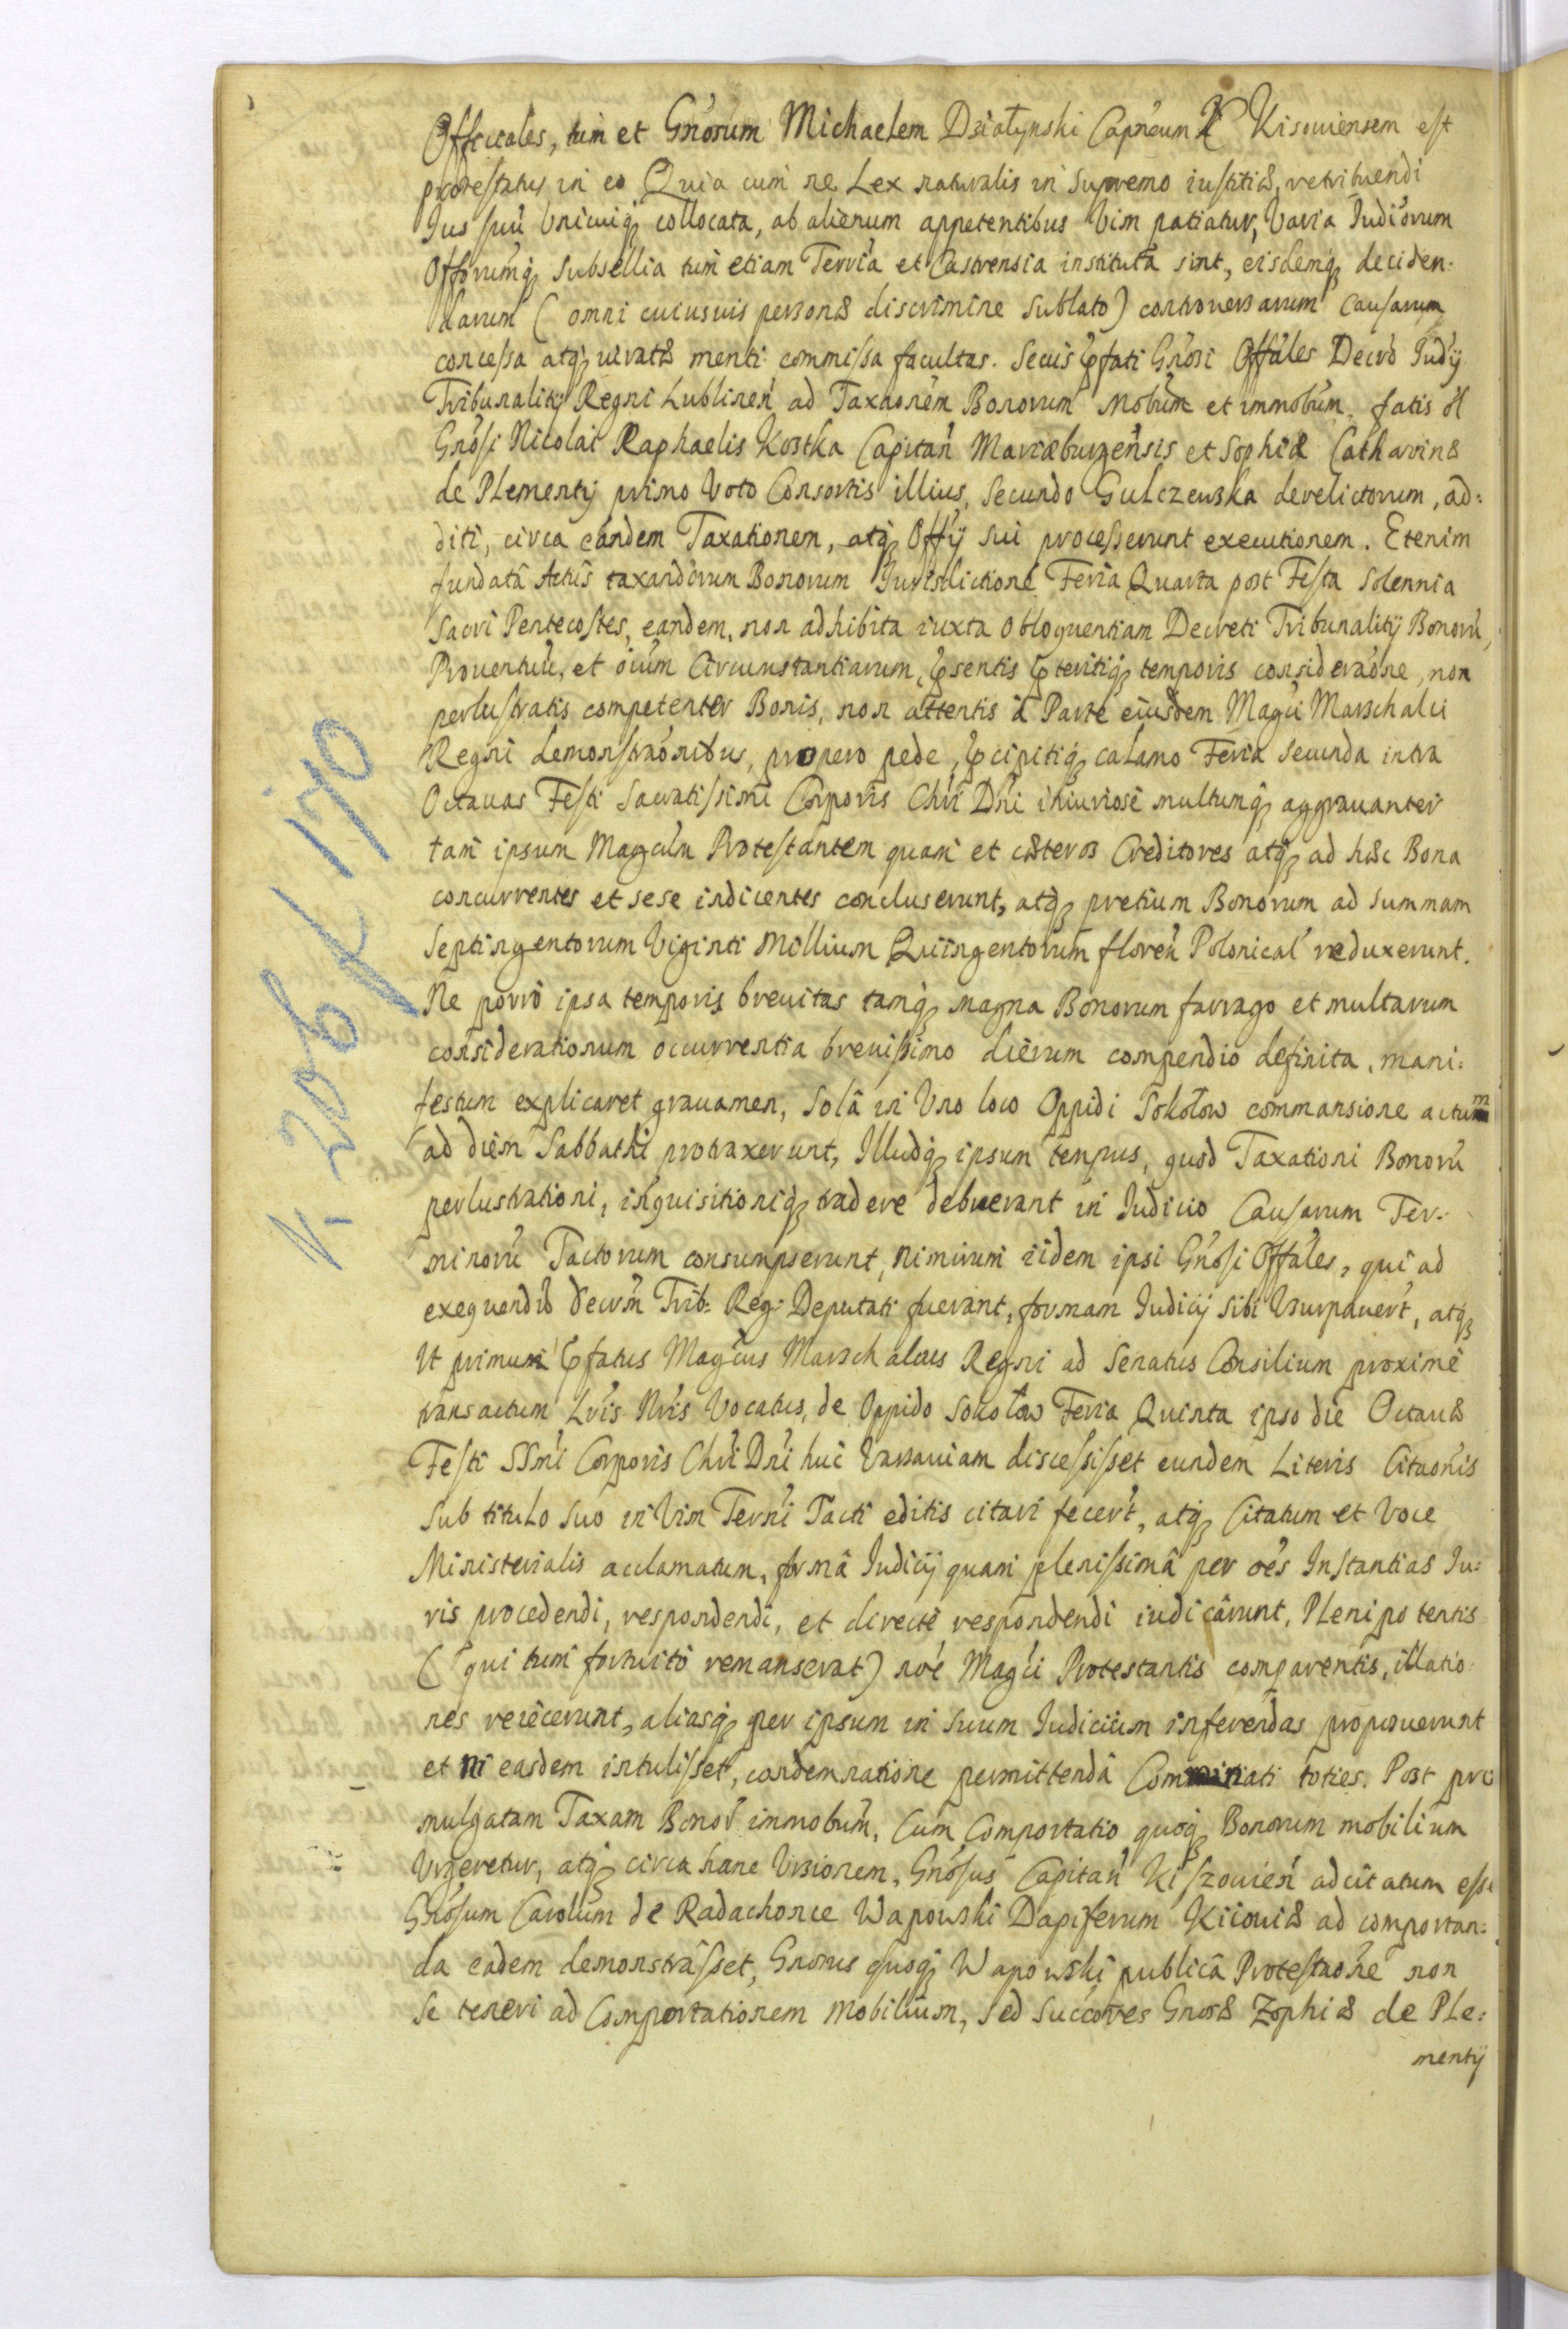 Officiales, tum et Gnosum Michaelem Działynski Capneum Kisouiensem est
protestatus in eo Quia cum ne Lex naturalis in supremo iustitiæ, retribuendi
Jus suũ Unicuiq; collocata, ab alienum appetentibus Vim patiatur, Varia Judiorum
Offorumq; subsellia tum etiam Terria et Castrensia instituta sint, eisdemq; deciden:
darum (omni cuiusuis personæ discrimine sublato) controuersarum Causarum
concessa atq; iuratæ menti commissa facultas. Secus pfati Gnosi Offales Decrõ Judÿ
Tribunalitÿ Regni Lublinen ad Taxaonem Bonorum Mobum et immobum, fatis ol
Gnosi Nicolai Raphaelis Kostka Capitan Mariæburgensis et Sophiæ Catharinæ
de Plementÿ primo Voto Consortis illius, Secundo Gulczewska derelictorum, ad:
diti, circa eandem Taxationem, atq; Offÿ sui processerunt executionem. Etenim
fundatâ Actûs taxandorum Bonorum Jurisdictione Feria Quarta post Festa Solennia
Sacri Pentecostes, eandem, non adhibita iuxta obloquentiam Decreti Tribunalitÿ Bonorũ,
Prouentuũ, et oium Circumstantiarum, psentis pteritiq; temporis consideraone, non
perlustratis competenter Bonis, non attentis à Parte eiusdem Magci Marschalci
Regni demonstraonibus, propero pede, pcipitiq; calamo Feria secunda intra
Octauas Festi Sacratissimi Corporis Chri Dni iniuriosè multumq; aggrauanter
tam ipsum Magcum Protestantem quam et cæteros Creditores atq; ad hæc Bona
concurrentes et sese indicentes concluserunt, atq; pretium Bonorum ad summam
Septingentorum Viginti Millium Quingentorum floren Polonical reduxerunt.
Ne porrò ipsa temporis breuitas tamq; magna Bonorum farrago et multarum
considerationum occurrentia breuissimo dierum compendio definita, mani:
festum explicaret grauamen, Solâ in Uno loco Oppidi Sokołow commansione actum
ad diem Sabbathi protraxerunt, Illudq; ipsum tempus, quod Taxationi Bonorũ
perlustrationi, inquisitioniq; tradere debuerant in Judicio Causarum Ter:
minorũ Tactorum consumpserunt, Nimirum iidem ipsi Gnosi Offales, qui ad
exequendũ decrm Trib: Reg: Deputati fuerant, formam Judicij sibi Usurpauert, atq;
Ut primum pfatus Magcus Marschalcus Regni ad Senatus Consilium proximè
transactum Lris Nris Vocatus, de Oppido Sokołow Feria Quinta ipso die Octauæ
Festi SSmi Corporis Chri Dni huc Varsauiam discessisset eundem Literis Citaonis
Sub titulo suo in Vim Termi Tacti editis citari fecert, atq; Citatum et Voce
Ministerialis acclamatum, formâ Judicij quam plenissimâ per oes Instantias Ju:
ris procedendi, respondendi, et directè respondendi iudicârunt, Plenipotentis
(qui tum fortuitò remanserat) noe Magci Protestantis comparentis, illatio:
nes reiecerunt, aliasq; per ipsum in suum Judicium inferendas proposuerunt
et ni easdem intulisset, condemnatione permittendâ Comminati toties. Post pro
mulgatam Taxam Bonor immobum, Cum Comportatio quoq; Bonorum mobilium
Urgeretur, atq; circa hanc Ursionem, Gnosus Capitan Kiszouien adcitatum esse
Gnosum Carolum de Radachonce Wapowski Dapiferum Kiiouiæ ad comportan:
da eadem demonstrâsset, Gnosus quoq; Wapowski publicâ Protestaone non
se teneri ad Comportationem Mobilium, sed Succores Gnosæ Zophiæ de Ple:
mentÿ
N. 206 K 170